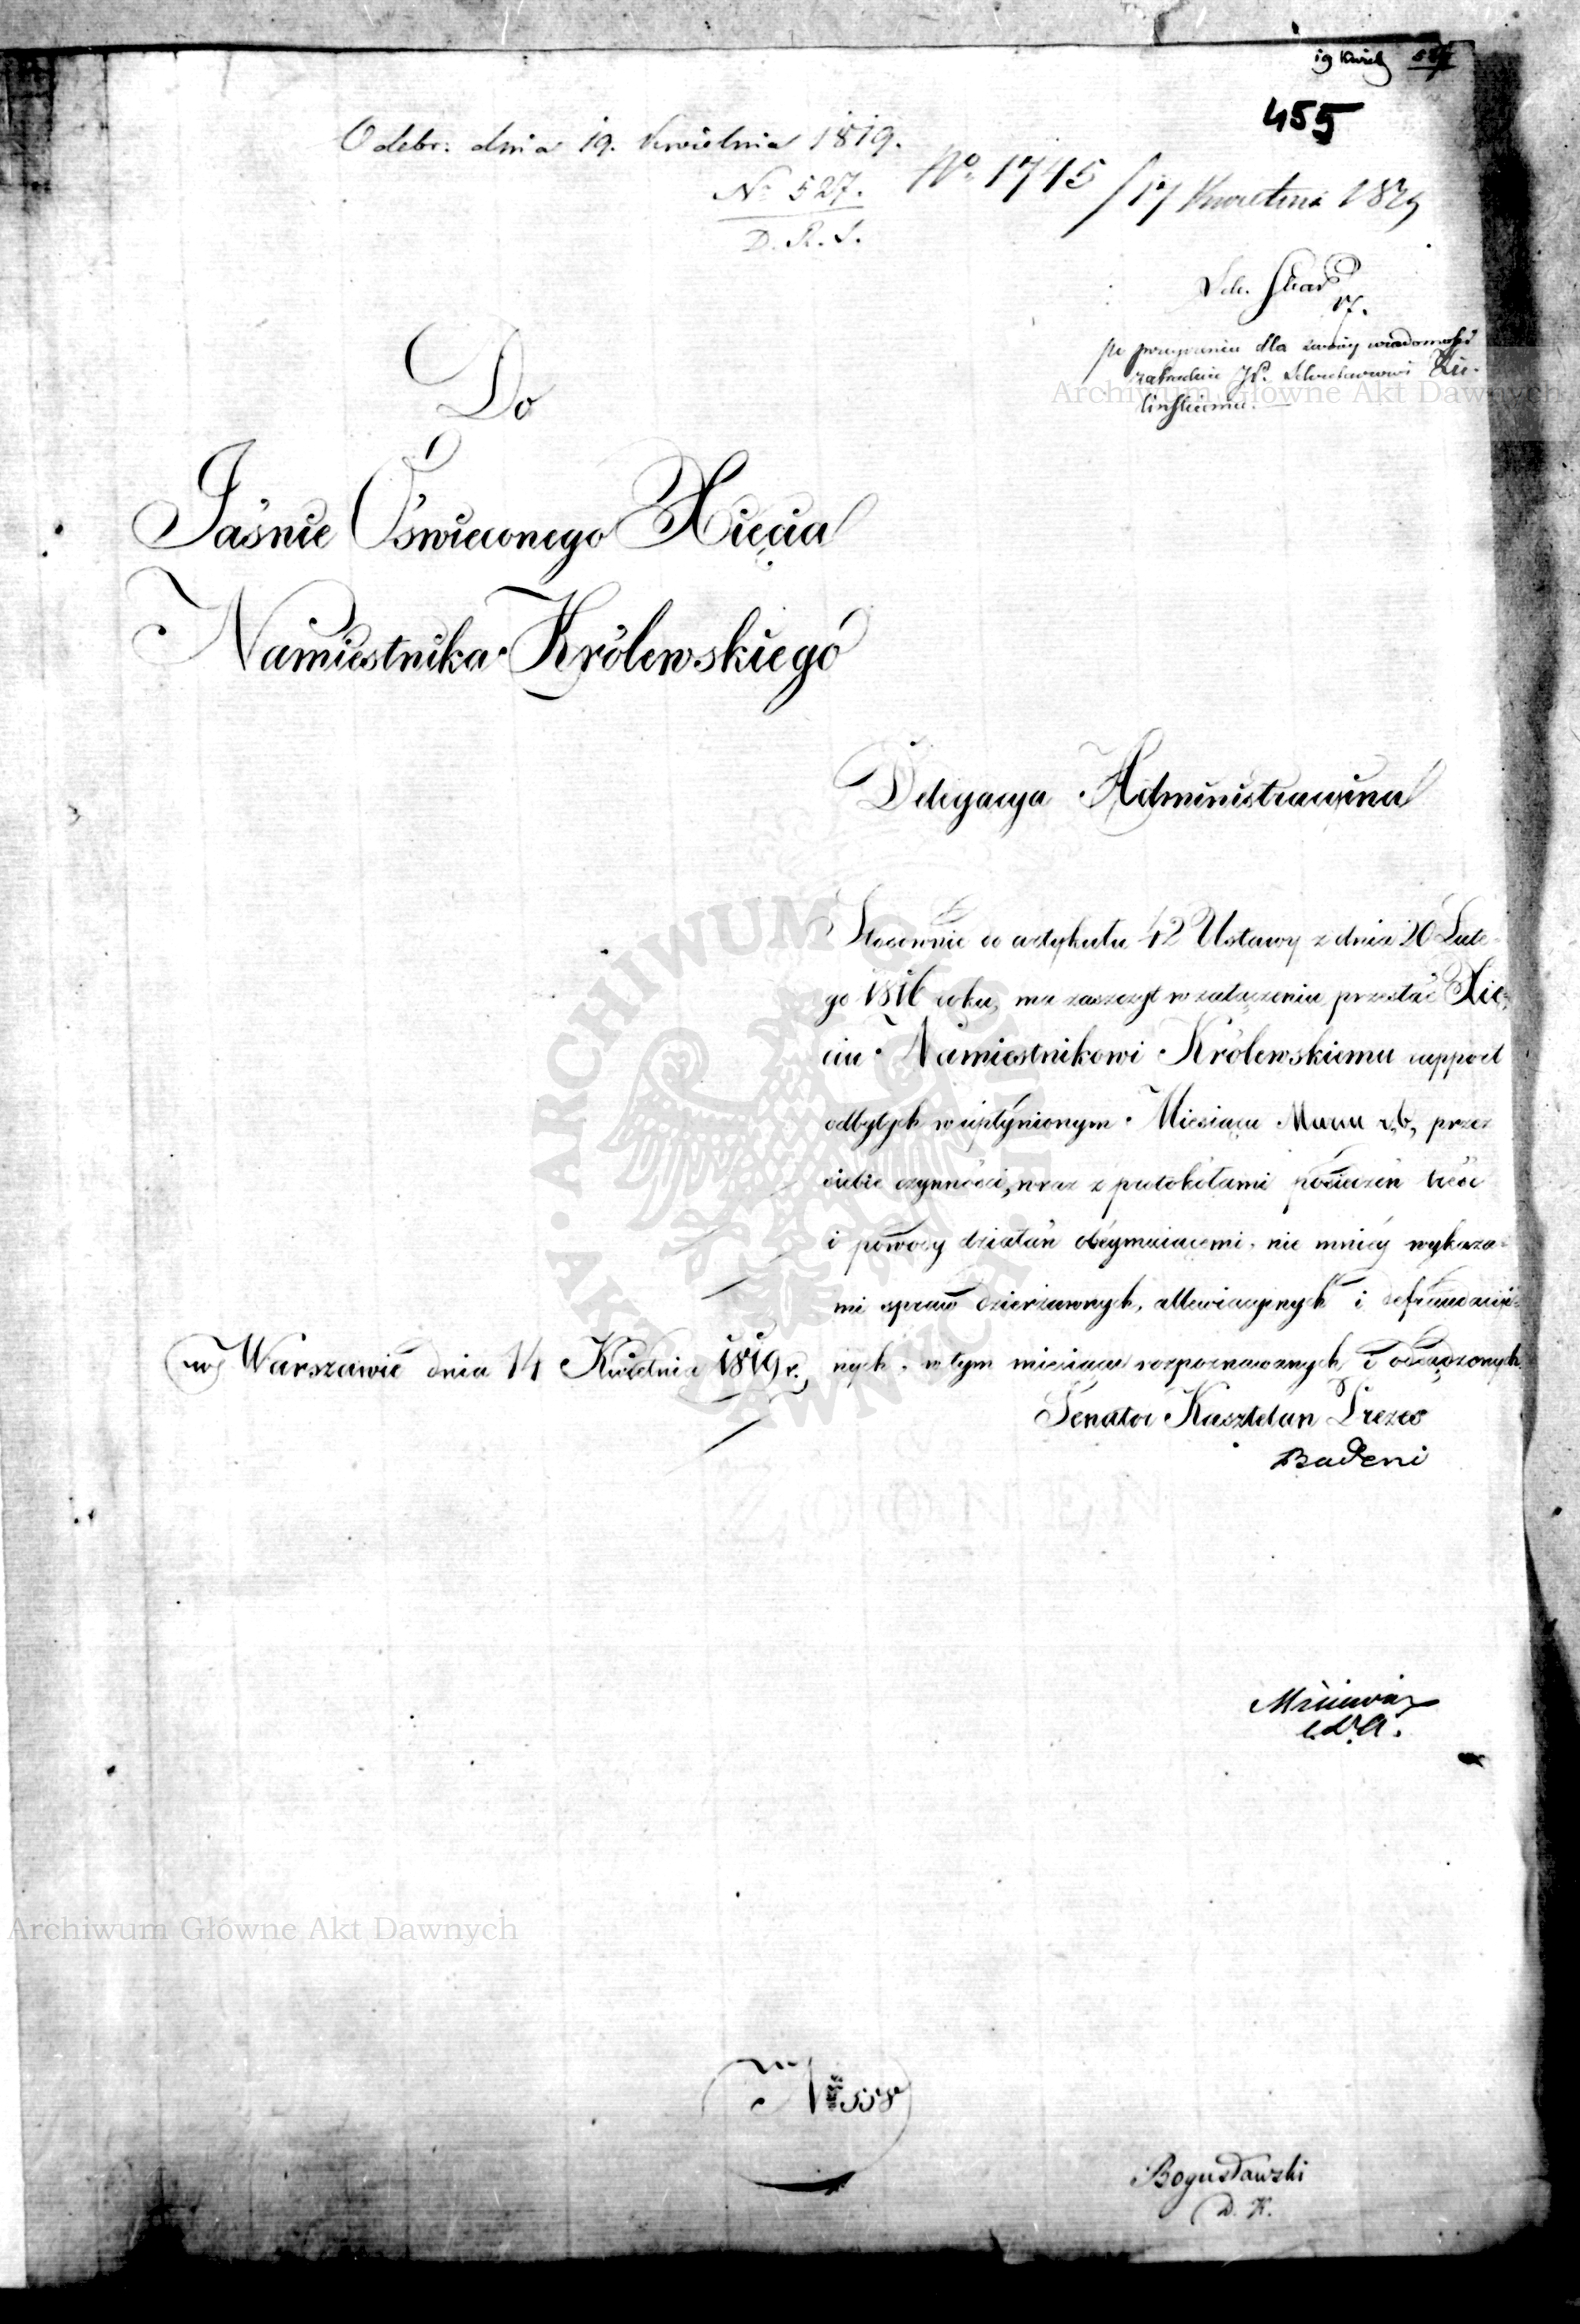 19 Kwiet 527
455
Odebr. dnia 19. Kwietnia 1819.
No 527.
D. R. S.
No 1745 / 17 Kwietnia 1819
17.
po przeyrzeniu dla swoiey wiadomości
JP. Sekretarzowi Zie-
linskiemu.
Archiwum Główne Akt Dawnych
Do
Jaśnie Oświeconego Xięcia
Namiestnika Królewskiego
Delegacya Administracyina
Stosownie do artykułu 42 Ustawy z dnia 20 Lute-
go 1816 roku, ma zaszczyt w załączeniu przesłać Xię-
ciu Namiestnikowi Królewskiemu rapport
odbytych w upłynionym Miesiącu Marcu r.b, przez
siebie czynności, wraz z protokółami posiedzeń treść
i powody działań obeymuiącemi, nie mniéy wykaza-
mi spraw dzierżawnych, allewiacyinych i defraudacyi-
nych, w tym miesiącu rozpoznawanych i osądzonych.
w Warszawie dnia 14 Kwietnia 1819 r.
Senator Kasztelan Prezes
Badeni
ARCHIWUM GŁÓWNE AKT DAWNYCH
Archiwum Główne Akt Dawnych
No 558
Bogusławski
D. K.